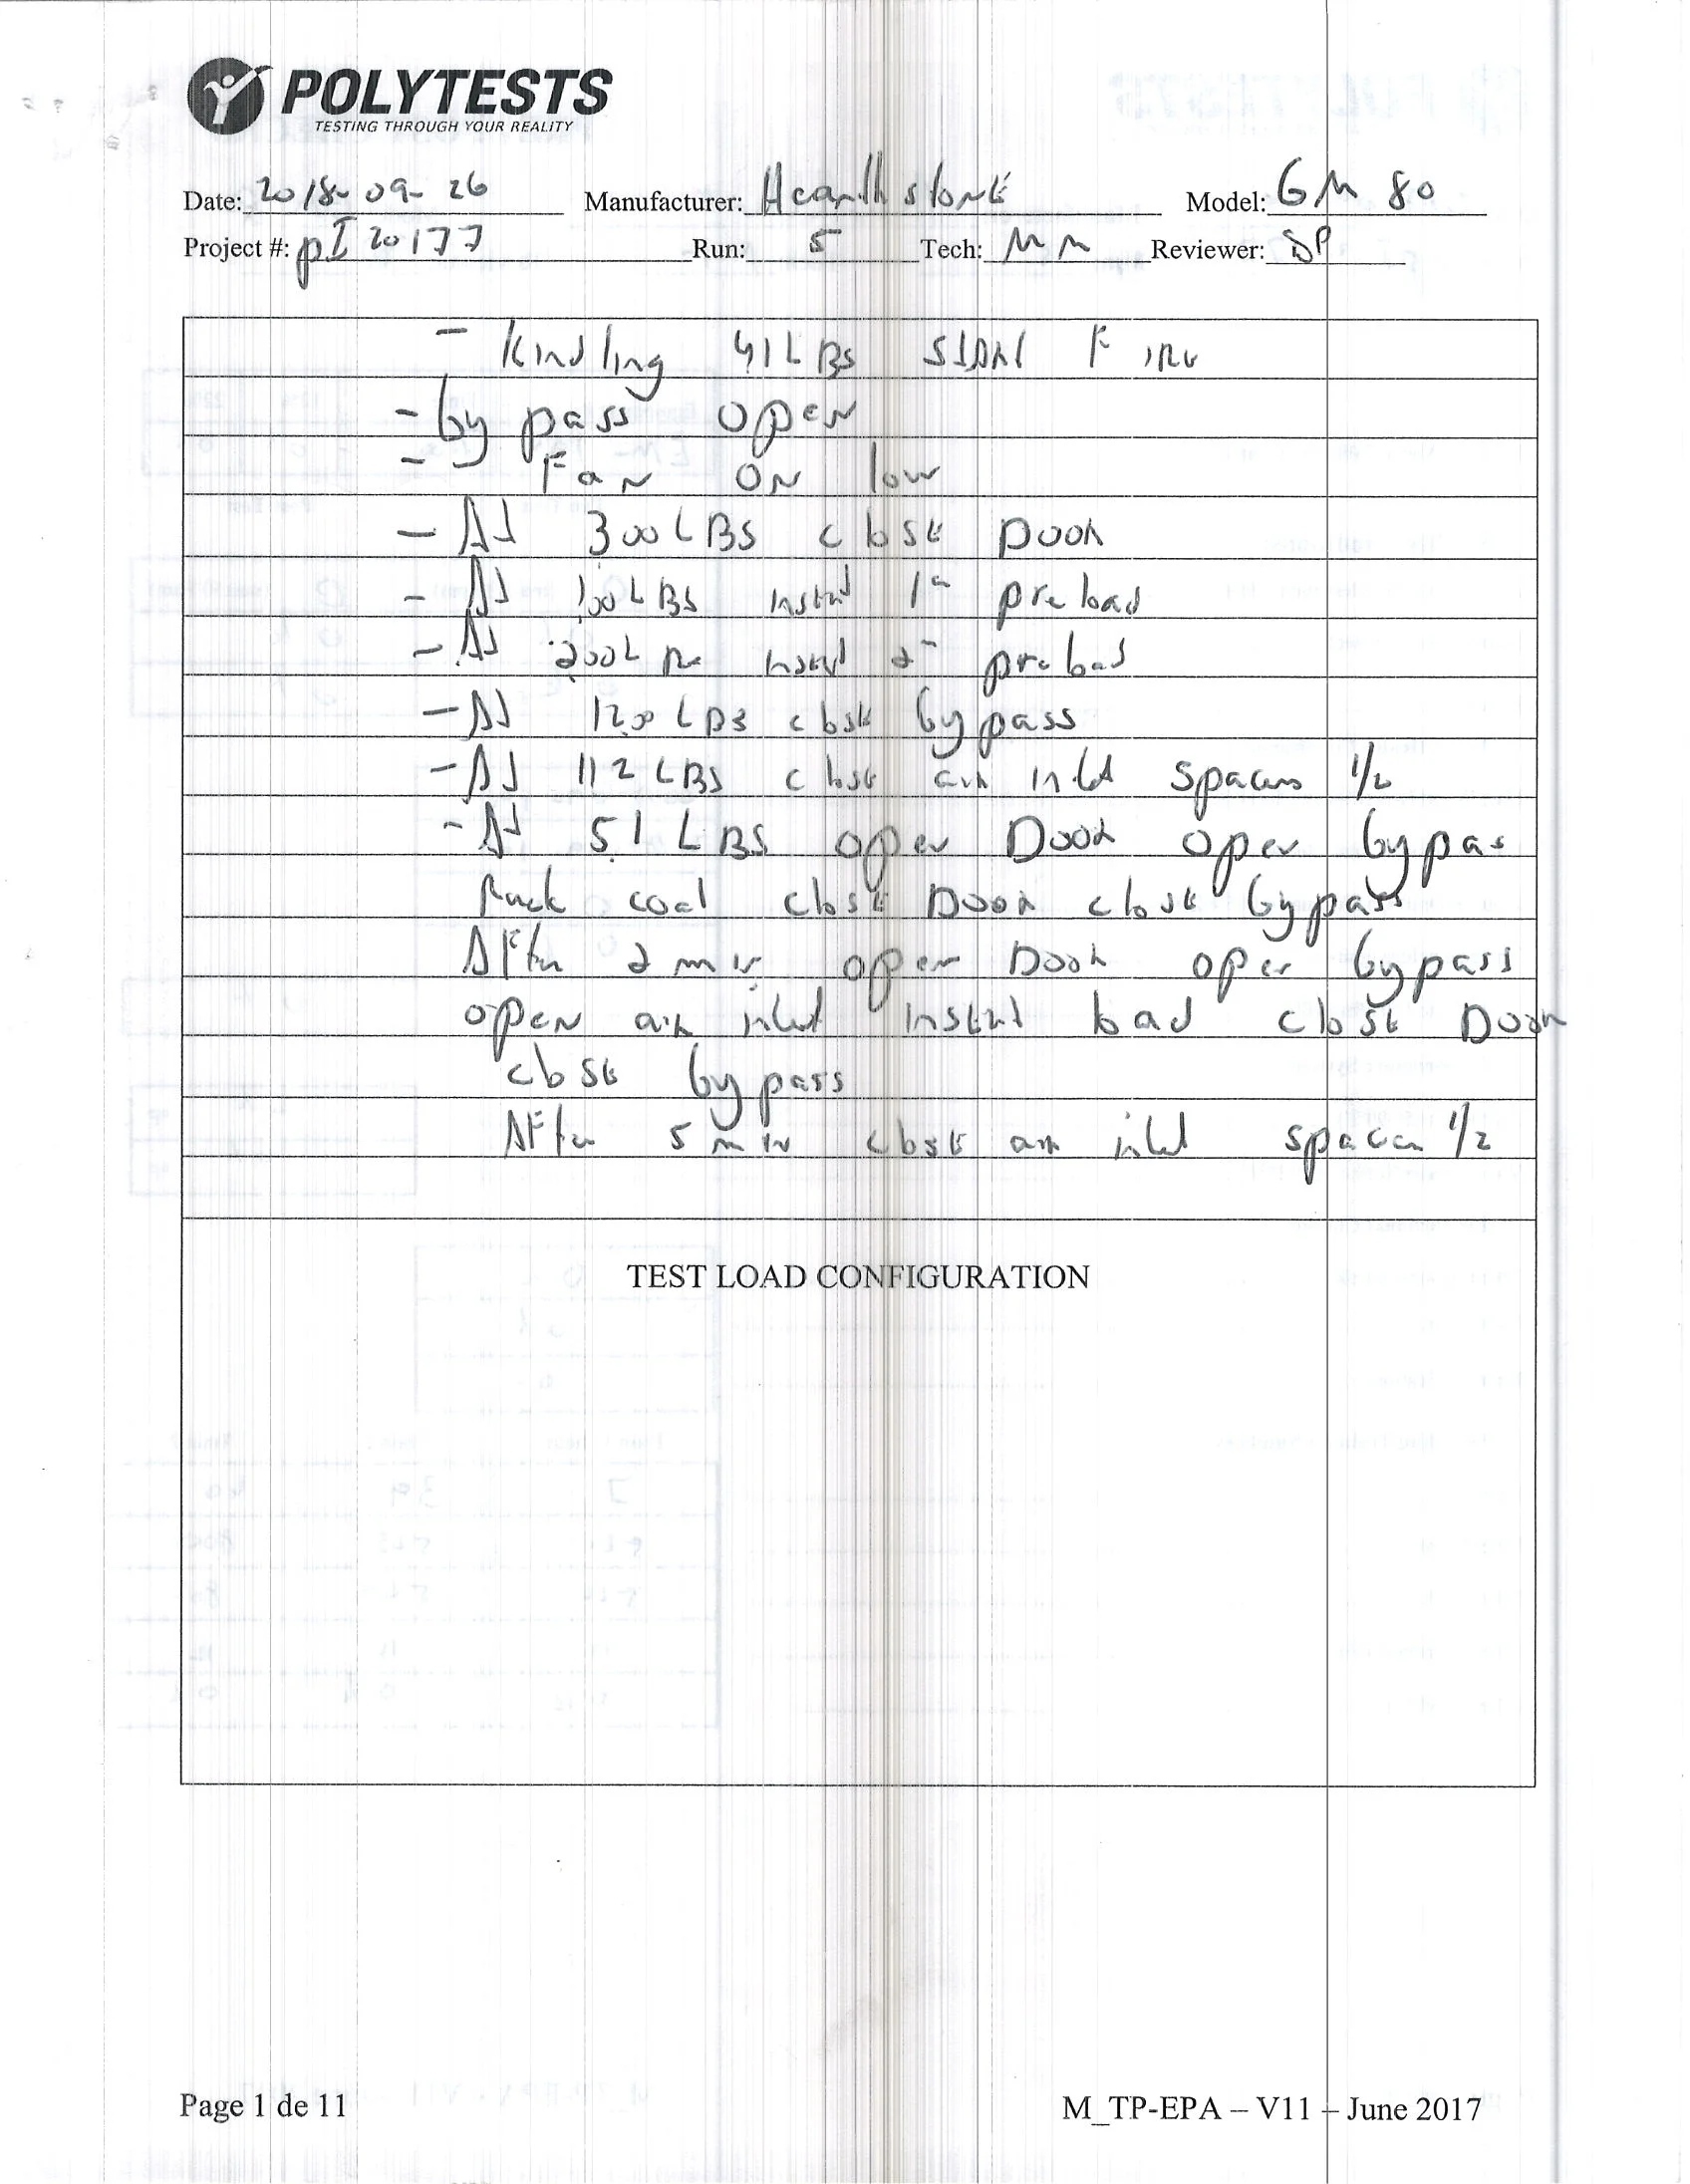 POLYTESTS
TESTING THROUGH YOUR REALITY
Date: 2018-09-26 Manufacturer: Hearthstone Model: GM 80
Project #: pI 20177 Run: 5 Tech: MM Reviewer: DP
- Kindling 41 LBS Start Fire
- by pass open
- Fan on low
- At 300 LBS close Door
- At 100 LBS insert 1 preload
- At 200 insert 2 preload
- At 1200 LBS close by pass
- At 112 LBS close air inlet spacer 1/2
- At 51 LBS open Door open by pas
Rack coal close Door close by pass
After 2 min open Door open by pass
open air inlet insert load close Door
close by pass
After 5 min close air inlet spacer 1/2
TEST LOAD CONFIGURATION
Page 1 de 11
M_TP-EPA – V11 – June 2017